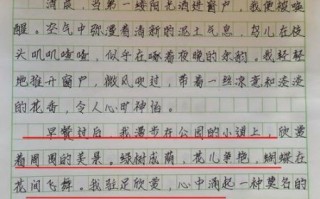 清晨，当第一缕阳光洒进窗户，我便被唤
醒。空气中弥漫着清新的泥土气息，鸟儿在枝
头叽叽喳喳，似乎在诉着夜晚的
地推开窗户，微风吹过，带着一丝凉意和
的花香，令人心旷神怡。
早餐过后，我漫步在公园的小道上，欣赏
着周围的美景。绿树成荫，花儿争艳，蝴蝶在
花间飞舞。我驻足欣赏，心中涌起一种莫名的